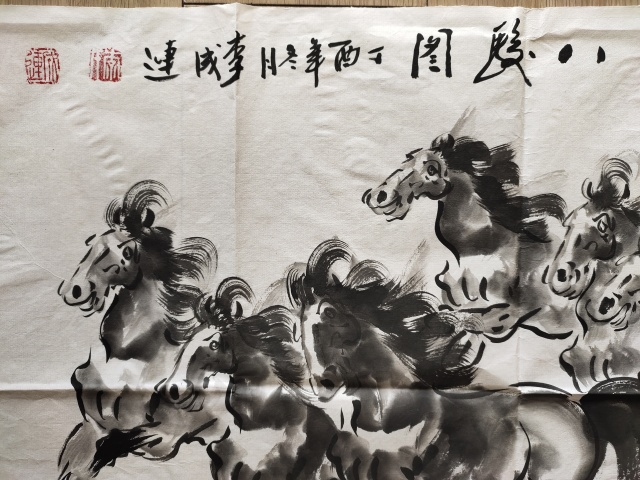 八骏图 丁酉年冬月 李成連